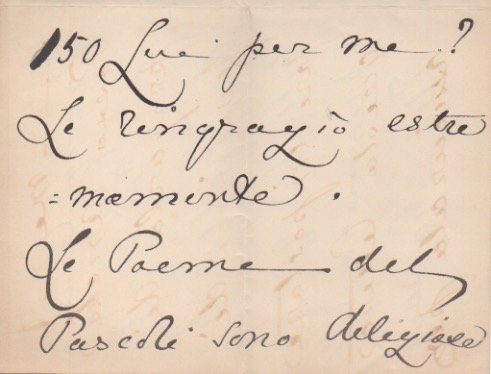 150 Lire per me?
Le ringrazio estre
=mamente.
Le Poeme del
Pascoli sono deligiose